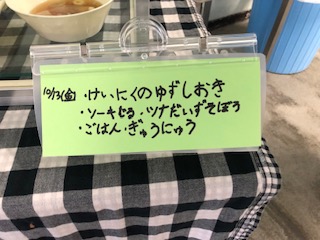 10/13(金)・けいにくのゆずしおやき
・ソーキじる・ツナだいずそぼろ
・ごはん・ぎゅうにゅう